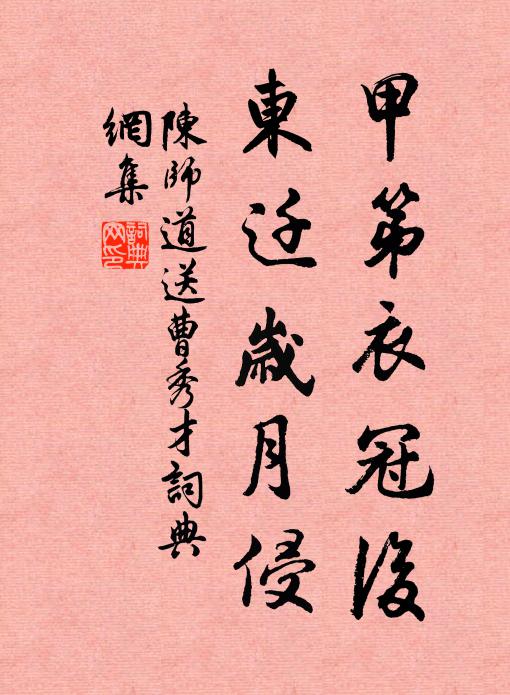 甲第衣冠後
東迁歲月侵
陳師道送曹秀才詞典
網集
詞典
网印